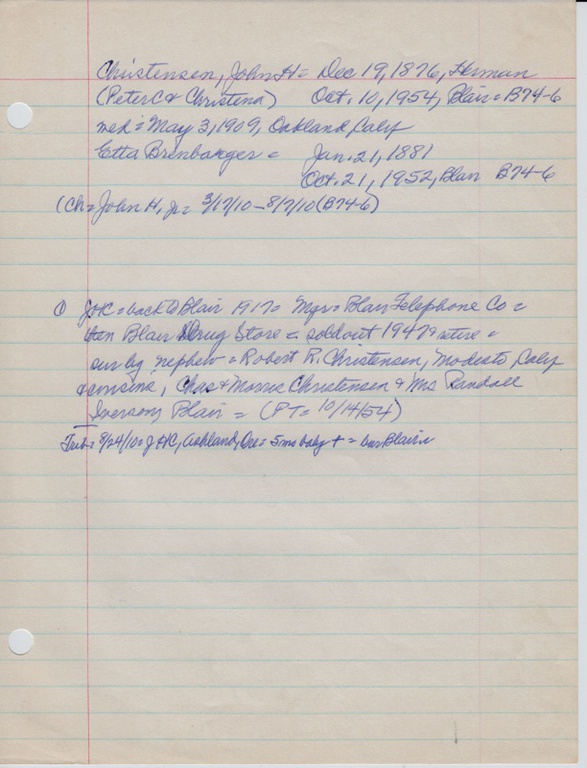 Christensen, John H = Dec 19, 1876, Herman
(Peter C & Christena) Oct. 10, 1954, Blair = B74-6
med = May 3, 1909, Oakland, Calif
Etta Brenbarger = Jan. 21, 1881
Oct. 21, 1952, Blair B74-6
(Ch = John H, Jr = 3/17/10 - 8/7/10 (B74-6)
① J&K = back to Blair 1917 = Mgr = Blair Telephone Co =
then Blair Drug Store = sold out 1947 = retire =
sur by nephew = Robert R. Christensen, Modesto, Calif
& cousins, Chas & Morris Christensen & Mrs Randall
Iverson, Blair = (PT = 10/14/54)
Trib = 8/24/10 = J &K, Ashland, Ore = 5 mo baby + = bur Blair